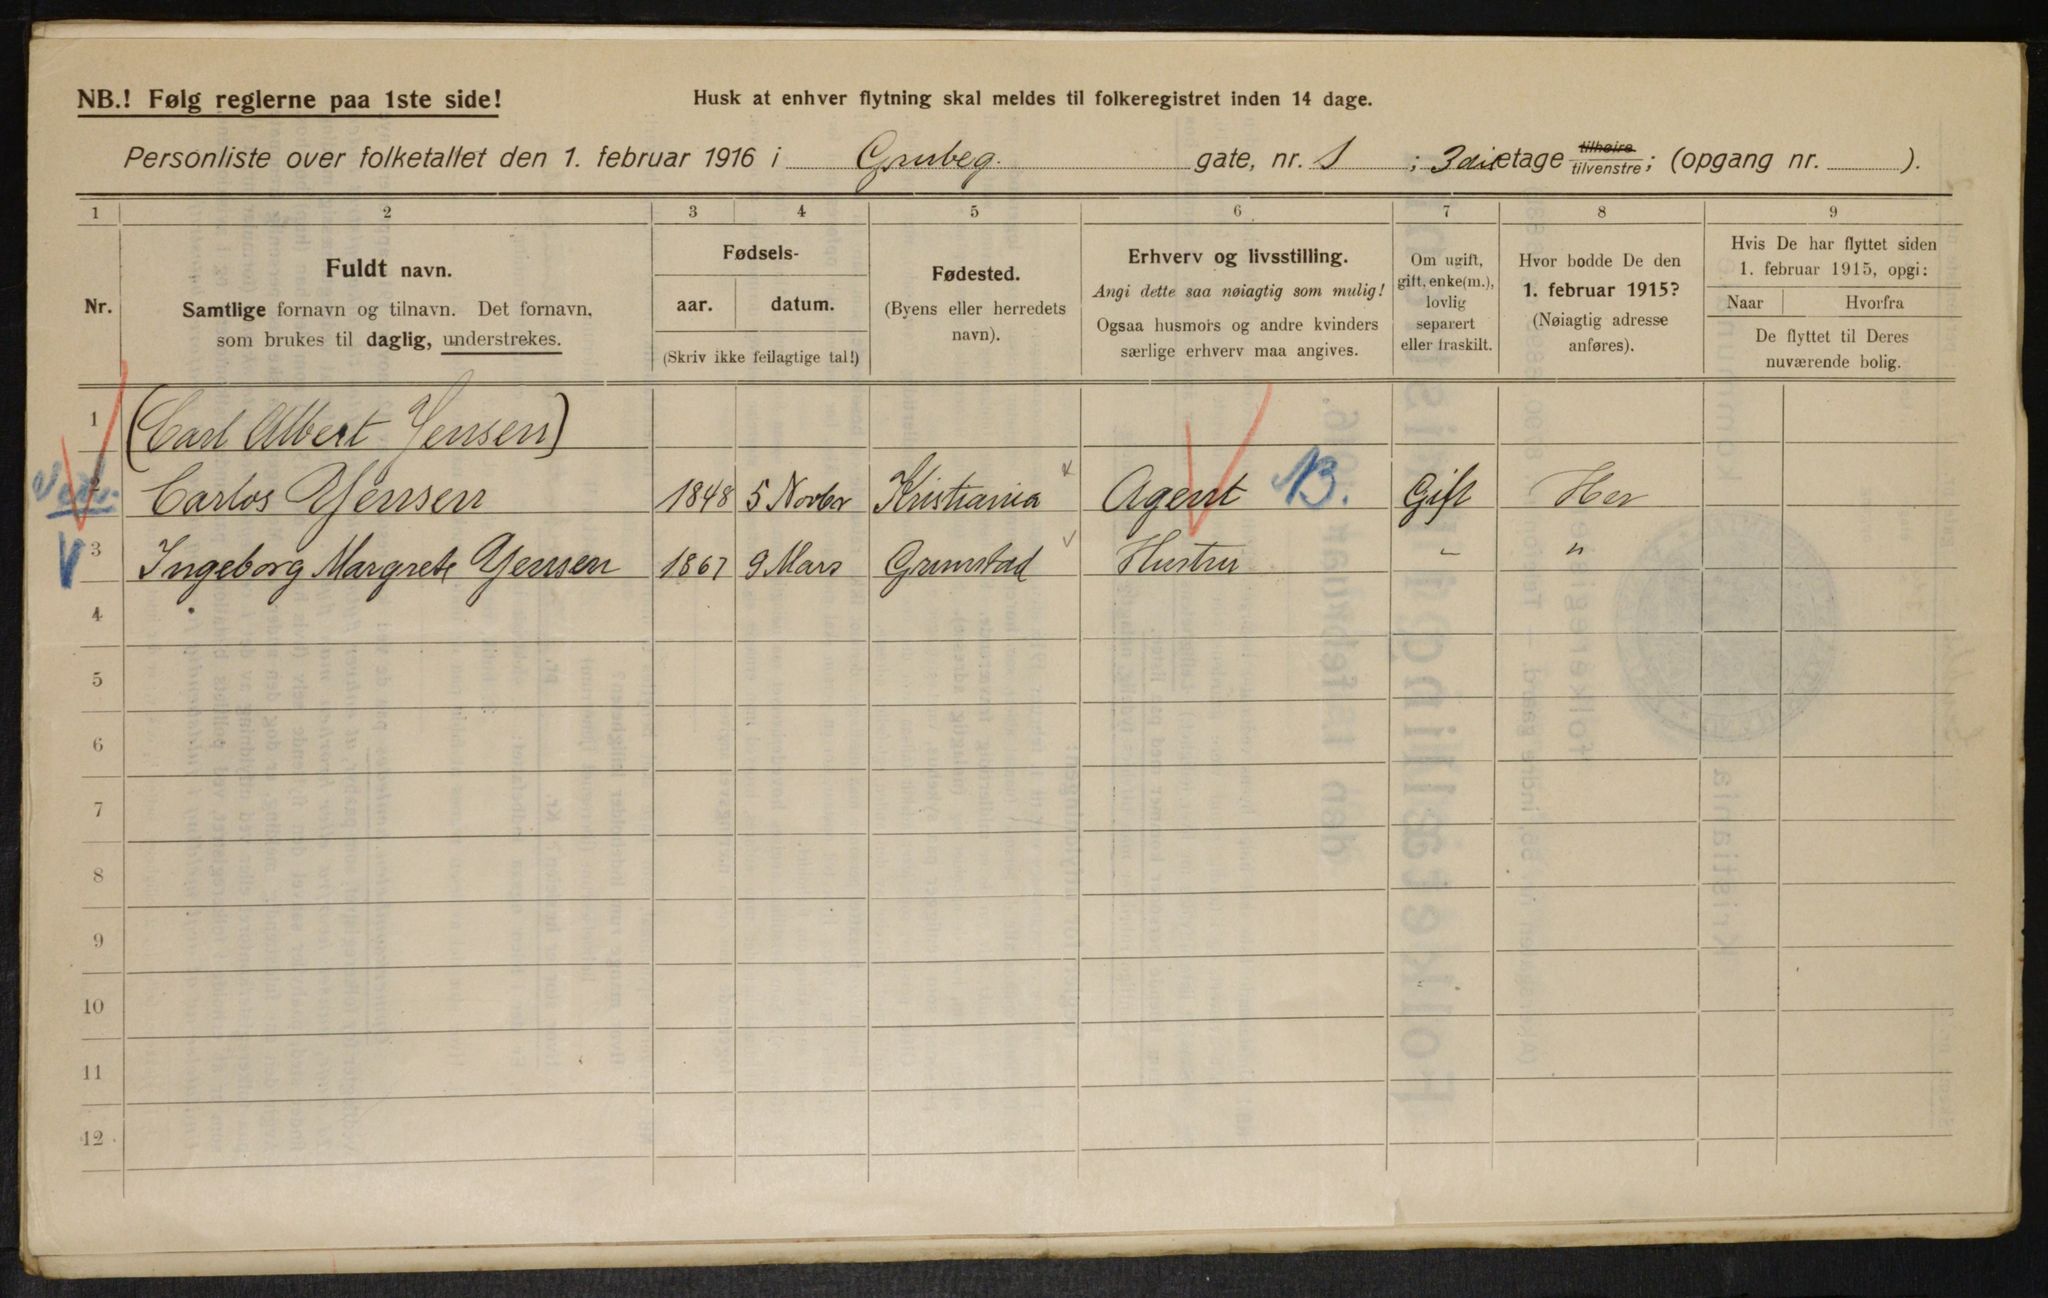 NB.! Følg reglerne paa 1ste side!
Husk at enhver flytning skal meldes til folkeregistret inden 14 dage.
Personliste over folketallet den 1. februar 1916 i Grubeg. gate, nr. 1 ; 3die etage tilhøire tilvenstre ; (opgang nr. ).
1 2 3 4 5 6 7 8 9
Nr.
Fuldt navn.
Samtlige fornavn og tilnavn. Det fornavn,
som brukes til daglig, understrekes.
Fødsels-
aar. datum.
(Skriv ikke feilagtige tal!)
Fødested.
(Byens eller herredets
navn).
Erhverv og livsstilling.
Angi dette saa nøiagtig som mulig!
Ogsaa husmors og andre kvinders
særlige erhverv maa angives.
Om ugift,
gift, enke(m.),
lovlig
separert
eller fraskilt.
Hvor bodde De den
1. februar 1915?
(Nøiagtig adresse
anføres).
Hvis De har flyttet siden
1. februar 1915, opgi:
Naar Hvorfra
De flyttet til Deres
nuværende bolig.
1 (Carl Albert Jensen)
2 Carlos Jensen 1848 5 Novbr Kristiania Agent B. Gift Her
3 Ingeborg Margrete Jensen 1867 9 Mars Grimstad Hustru " "
4
5
6
7
8
9
10
11
12